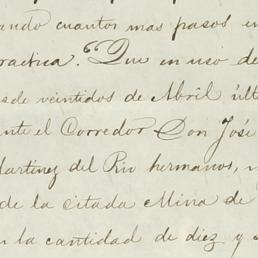 ando cuantos mas pasos en
practica. Que en uso de
sde veintidos de Abril últ
ante el Corredor Don José
Martinez del Rio hermanos,
de la citada Mina de
la cantidad de diez y